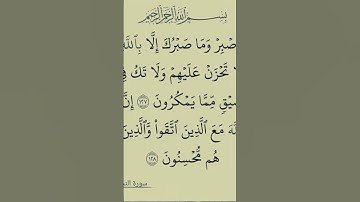 بِسْمِ ٱللَّهِ ٱلرَّحْمَٰنِ ٱلرَّحِيمِ
صْبِرْ وَمَا صَبْرُكَ إِلَّا بِٱللَّهِ
ا تَحْزَنْ عَلَيْهِمْ وَلَا تَكُ فِى
ضَيْقٍ مِّمَّا يَمْكُرُونَ ١٢٧ إِنَّ
لَّهَ مَعَ ٱلَّذِينَ ٱتَّقَوا۟ وَّٱلَّذِينَ
هُم مُّحْسِنُونَ ١٢٨
سورة الن